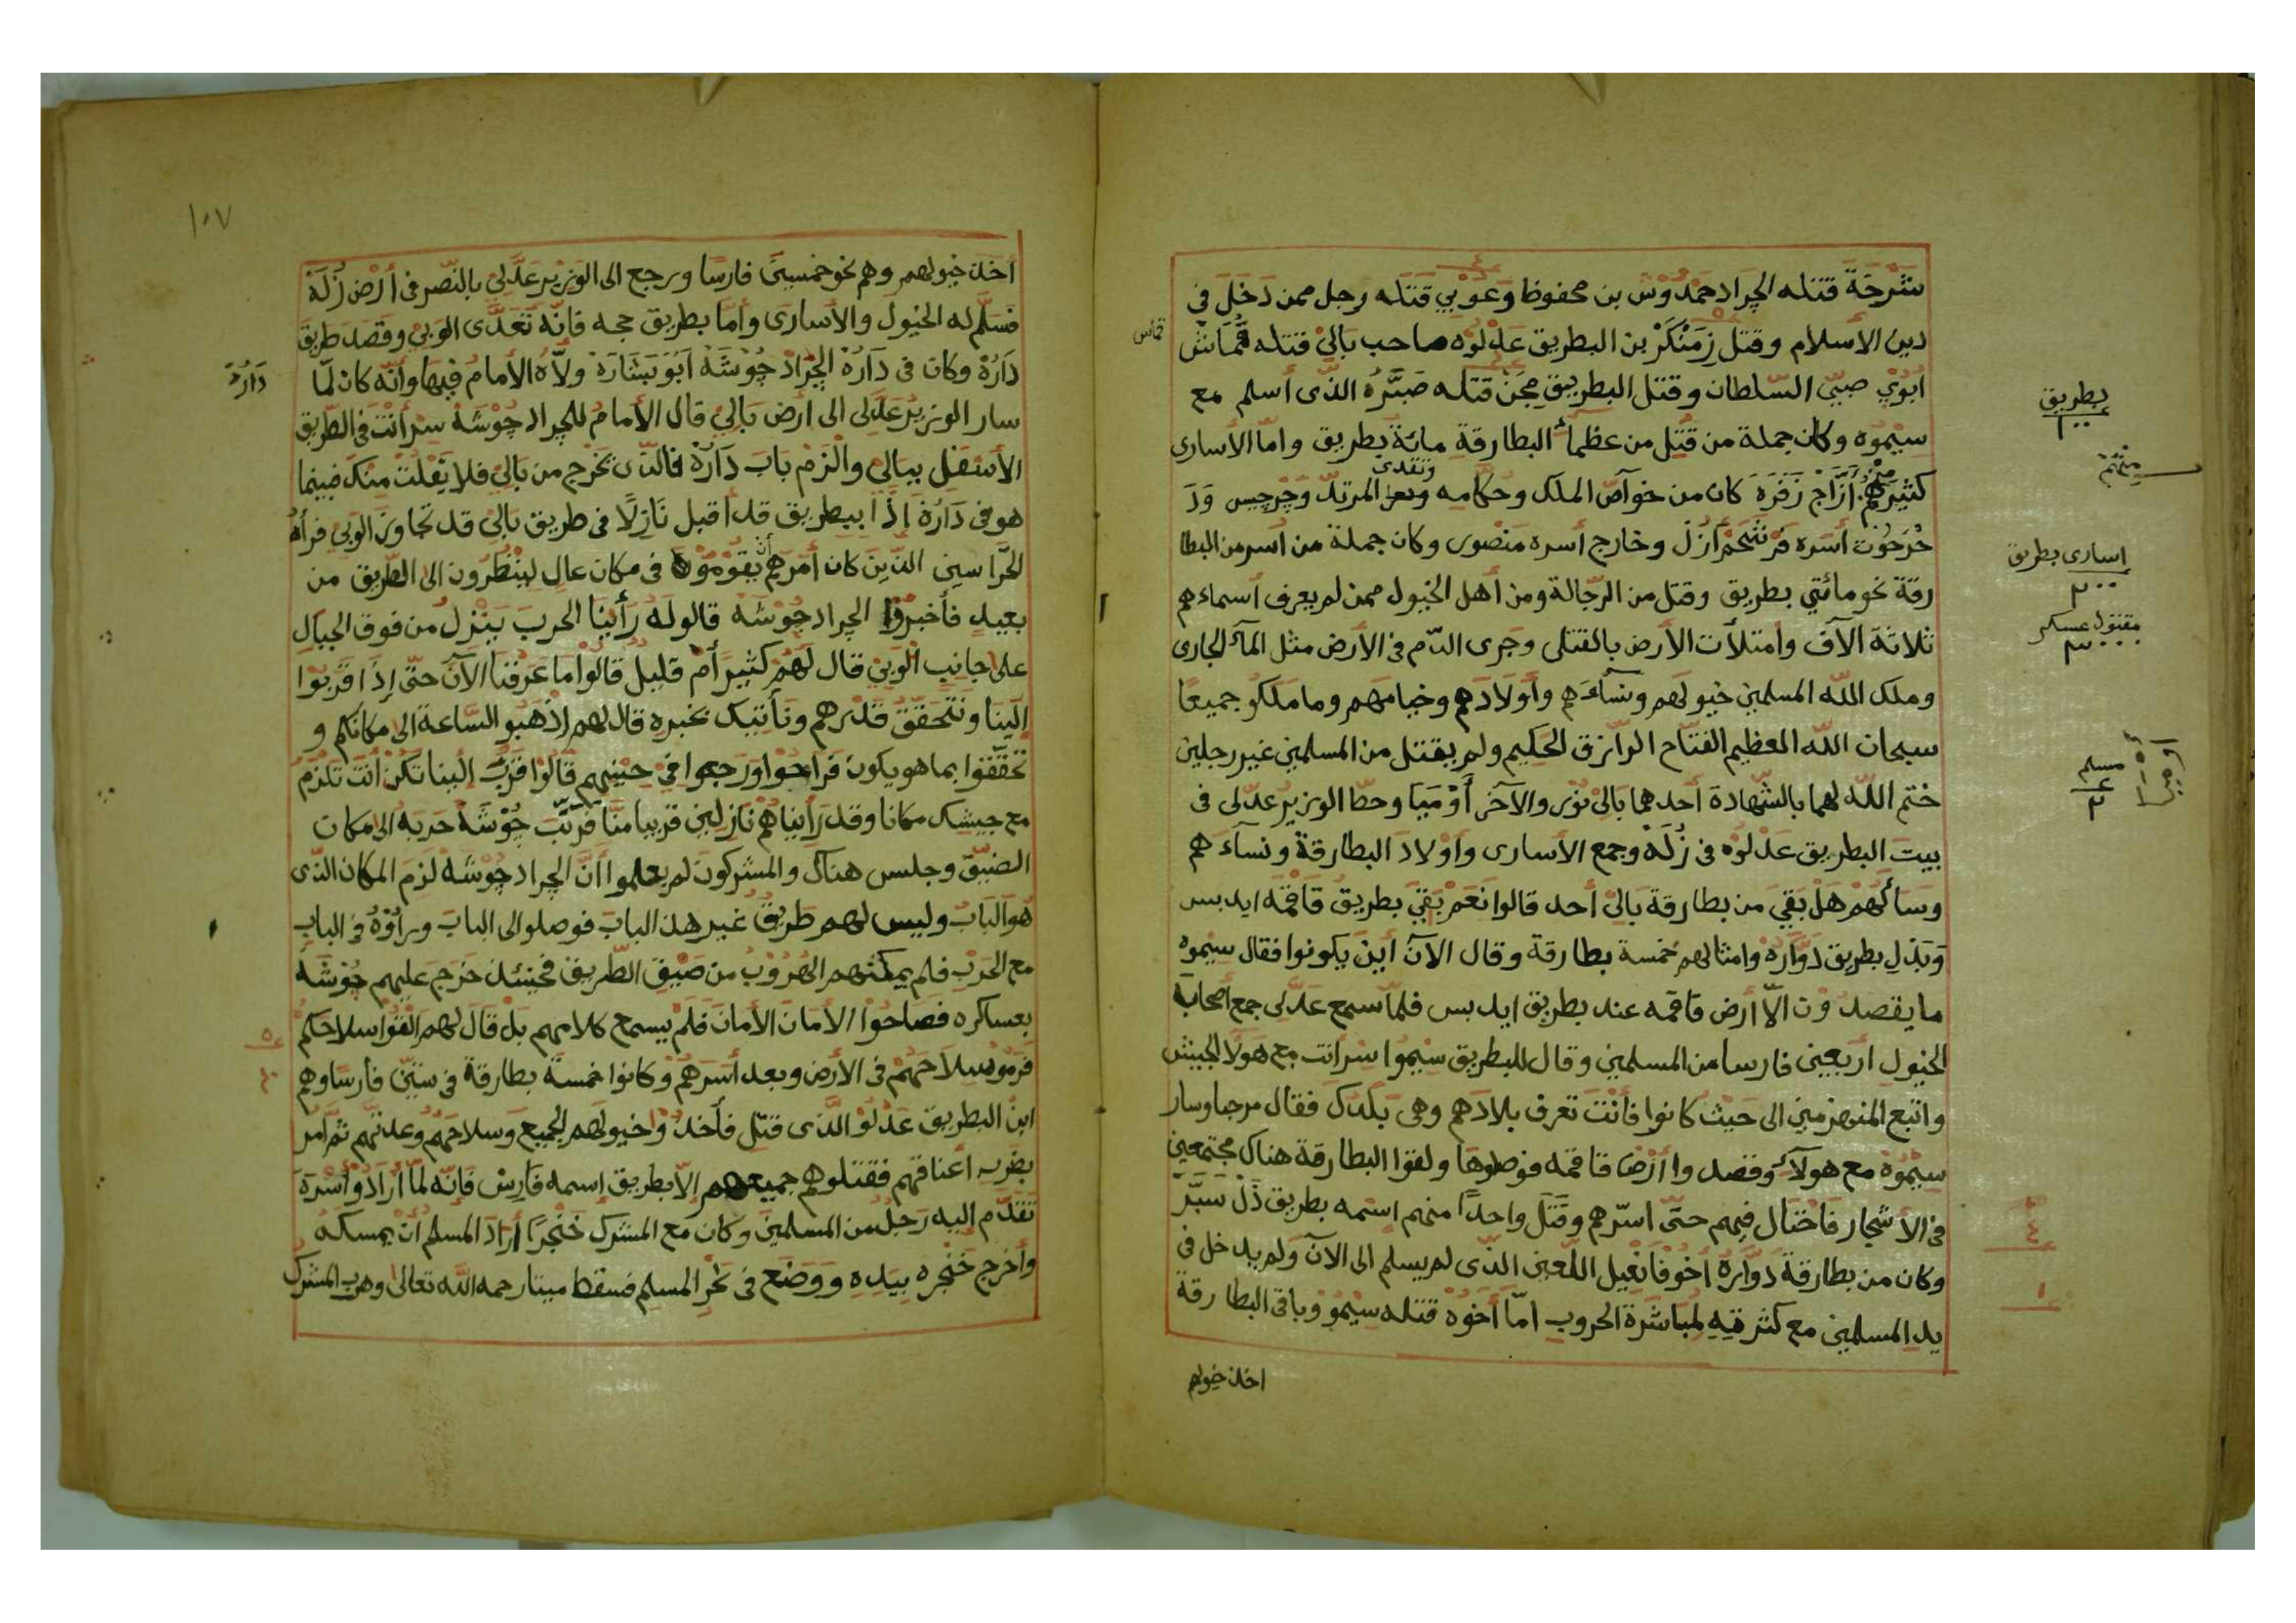 شرجة قتله الجراد حمدوش بن محفوظ وعوبي قتله رجل ممن دخل في
دين الأسلام وقتل زمنكر بن البطريق عدلوه صاحب بالي قتله قماش
ابوي صبي السلطان وقتل البطريق مجن قتله صبره الذي أسلم مع
سيموه وكان جملة من قتل من عظماء البطارقة مائة بطريق واما الأسارى
كثير منهم أزاج زفره كان من خواص الملك وحكامه المرتد وجرجيس ود
خرخوت أسره فرشحم آزل وخارج أسره منصور وكان جملة من أسر من البطا
رقة نحو مائتي بطريق وقتل من الرجالة ومن أهل الخيول ممن لم يعرف أسماءهم
ثلاثة الآف وامتلأت الأرض بالقتلى وجرى الدم في الأرض مثل الماء الجارى
وملك الله المسلمين خيولهم ونساءهم وأولادهم وخيامهم وما ملكو جميعا
سبحان الله العظيم الفتاح الرازق الحكيم ولم يقتل من المسلمين غير رجلين
ختم الله لهما بالشهادة أحدهما بالي نور والآخر أوميا وحط الوزير عدلى في
بيت البطريق عدلوه في زله وجمع الأسارى وأولاد البطارقة ونساءهم
وسألهم هل بقي من بطارقة بالي أحد قالوا نعم بقي بطريق قاقمه ايد بس
وبذل بطريق دواره وامثالهم خمسة بطارقة وقال الآن أين يكونوا فقال سيموه
ما يقصدون الا أرض قاقمه عند بطريق ايد بس فلما سمع عدلى جمع أصحابه
الخيول اربعين فارسا من المسلمين وقال للبطريق سيموا سر أنت مع هولا الجيش
واتبع المنهزمين الى حيث كانوا فأنت تعرف بلادهم وهي بلدك فقال مرحبا وسار
سيموه مع هولاء وقصد وا أرض قاقمه فوصلوها ولقوا البطارقة هناك مجتمعين
في الأشجار فاختال فيهم حتى اسرهم وقتل واحدا منهم اسمه بطريق ذل سبر
وكان من بطارقة دواره أخو فانغيل اللعين الذى لم يسلم الى الآن ولم يدخل في
يد المسلمين مع كثرقيه لمباشرة الحروب اما أخوه قتله سيمو وباقي البطارقة
اخذ خيولهم
قماس
بطريق
١٠٠
اسارى بطريق
٢٠٠
مقتول عسكر
٣٠٠٠
مسلم
٢
١٠٧
أخذ خيولهم وهم نحو خمسين فارسا ورجع الى الوزير عدلي بالنصر في أرض زله
فسلم له الخيول والأسارى وأما بطريق حجه فانه تعدى الوبي وقصد طريق
داره وكان في داره الجراد جوشه أبو بشاره ولاه الأمام فيها وأنه كان لما
سار الوزير عدلى الى ارض بالي قال الأمام للجراد جوشه سر أنت في الطريق
الأسفل ببالي والزم باب داره فالذى يخرج من بالي فلا يفلت منك فبينما
هو في داره إذا ببطريق قد أقبل نازلا في طريق بالي قد تجاوز الوبي فرأه
الحراسين الذين كان أمرهم أن يقوموه في مكان عال لينظرون الى الطريق من
بعيد فأخبروا الجراد جوشه قالوله رأينا الحرب ينزل من فوق الجبال
على جانب الوبي قال لهم كثير أم قليل قالوا ما عرفنا الآن حتى إذا قربوا
إلينا ونتحقق قدرهم ونأتيك بخبره قال لهم اذهبو الساعة الى مكانكم و
تحققوا بما هو يكون فراحوا ورجعوا في حينهم قالوا قرب إلينا تكن أنت تلزم
مع جيشك مكانا وقد رأيناهم نازلين قريبا منا فرتب جوشه حربه الى مكان
الضيق وجلس هناك والمشركون لم يعلموا أن الجراد جوشه لزم المكان الذى
هو الباب وليس لهم طريق غير هذ الباب فوصلوا الى الباب ورأوه في الباب
مع الحرب فلم يمكنهم الهروب من ضيق الطريق فحينئذ خرج عليهم جوشه
بعساكره فصاحوا الأمان الأمان فلم يسمع كلامهم بل قال لهم القوا سلاحكم
فرموا سلاحهم في الأرض وبعد أسرهم وكانوا خمسة بطارقة في ستين فأرسا وهم
ابن البطريق عدلو الذى قتل فأخذوا خيولهم الجميع وسلاحهم وعدتهم ثم أمر
بضرب أعناقهم فقتلوهم جميعهم الا بطريق إسمه فارس فانه لما أرادوا أسره
تقدم إليه رجل من المسلمين وكان مع المشرك خنجرا أراد المسلم أن يمسكه
وأخرج خنجره بيده ووضع في نحر المسلم فسقط ميتا رحمه الله تعالى وهرب المشرك
داره